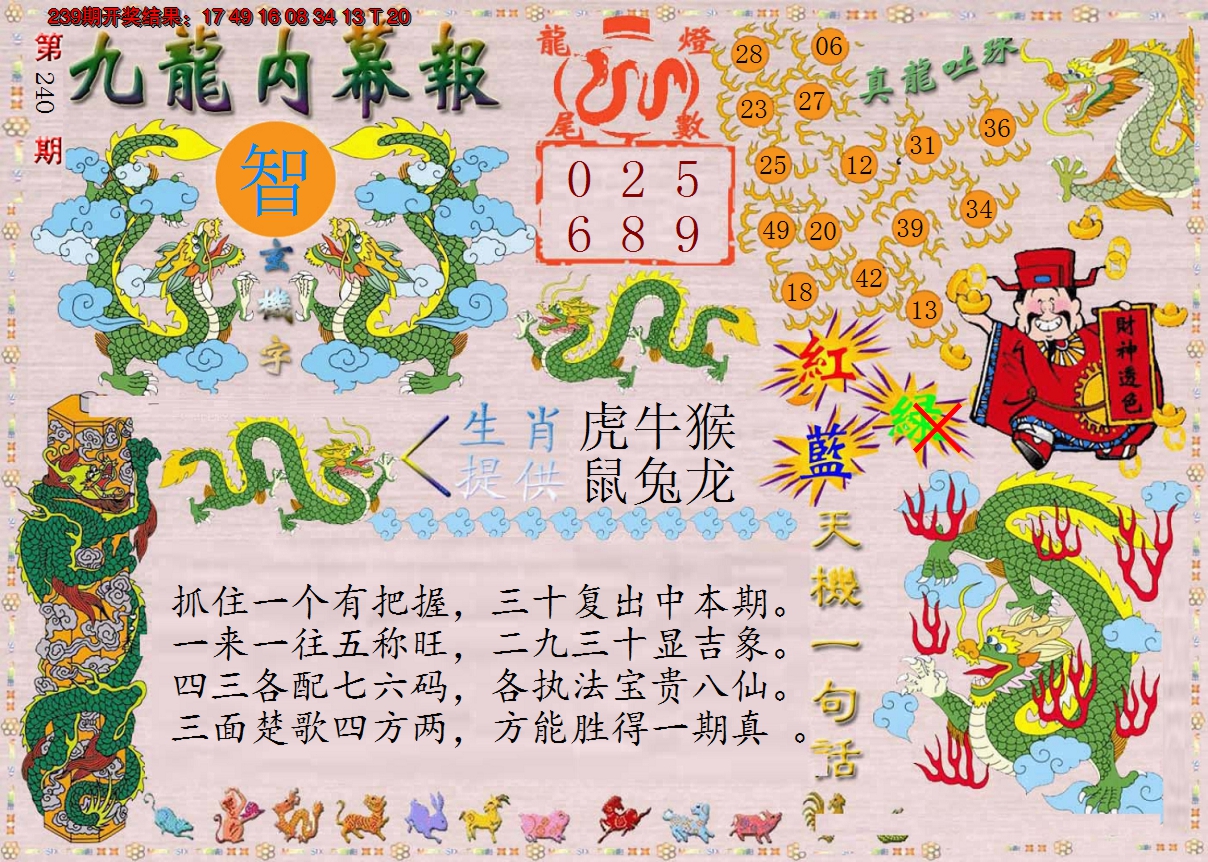 239期开奖结果：17 49 16 08 34 13 T 20
第240期
九龍内幕報
智
玄機字
龍燈
尾數
0 2 5
6 8 9
真龍吐珠
28 06
23 27
31 36
25 12
49 20 39 34
18 42 13
財神透色
紅
綠
藍
生肖提供
虎牛猴
鼠兔龙
天機一句話
抓住一个有把握，三十复出中本期。
一来一往五称旺，二九三十显吉象。
四三各配七六码，各执法宝贵八仙。
三面楚歌四方两，方能胜得一期真 。